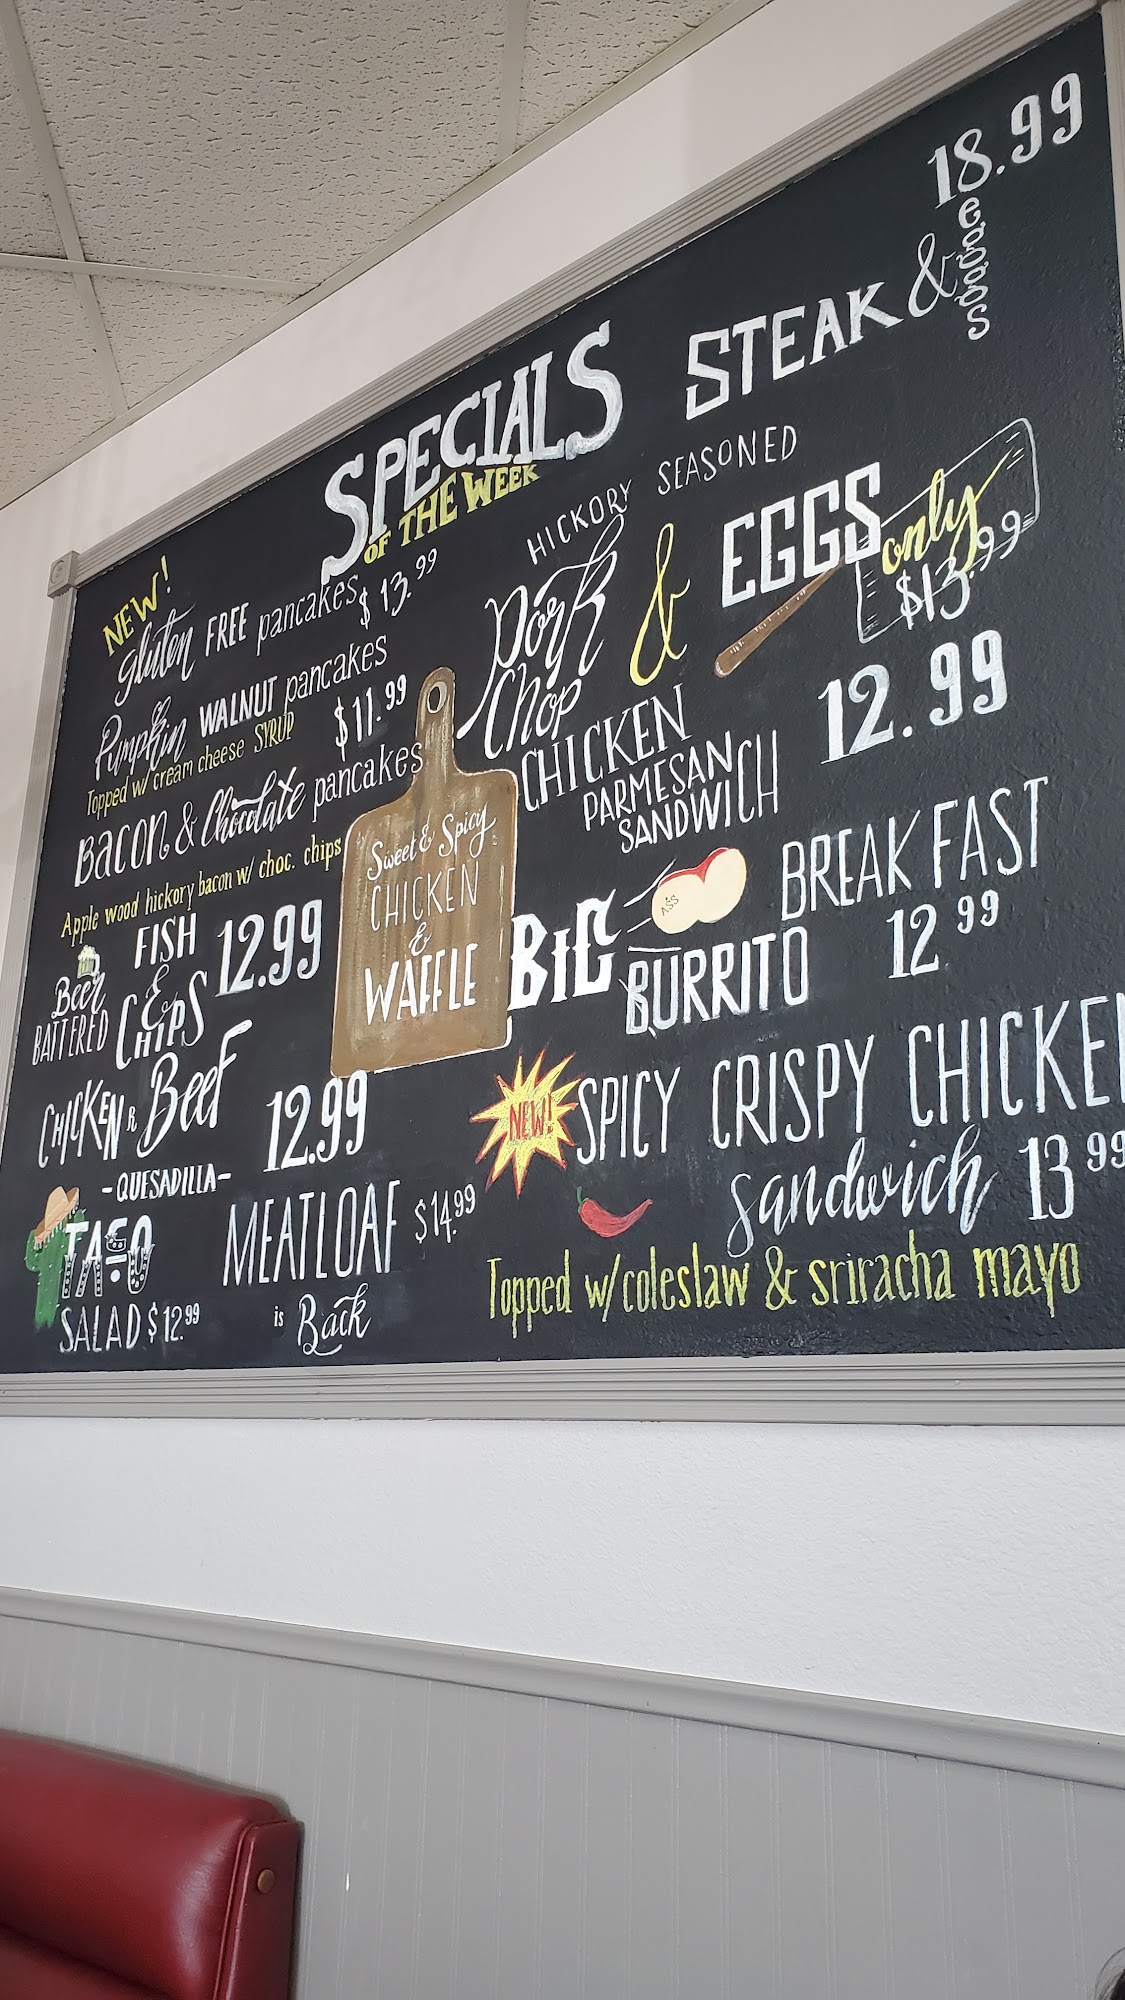 SPECIALS
OF THE WEEK
NEW!
gluten FREE pancakes $13.99
Pumpkin WALNUT pancakes
Topped w/ cream cheese SYRUP
$11.99
Bacon & Chocolate pancakes
Apple wood hickory bacon w/ choc. chips
Beer
BATTERED
FISH
&
CHIPS
12.99
CHICKEN R Beef
-QUESADILLA-
12.99
TACO
SALAD $12.99
MEATLOAF $14.99
is Back
Sweet & Spicy
CHICKEN
&
WAFFLE
STEAK & eggs
18.99
HICKORY SEASONED
Pork
Chop
& EGGS
only
$13.99
CHICKEN
PARMESAN
SANDWICH
12.99
BIG
ASS
BREAKFAST
BURRITO
12.99
NEW!
SPICY CRISPY CHICKEN
sandwich 13.99
Topped w/coleslaw & sriracha mayo